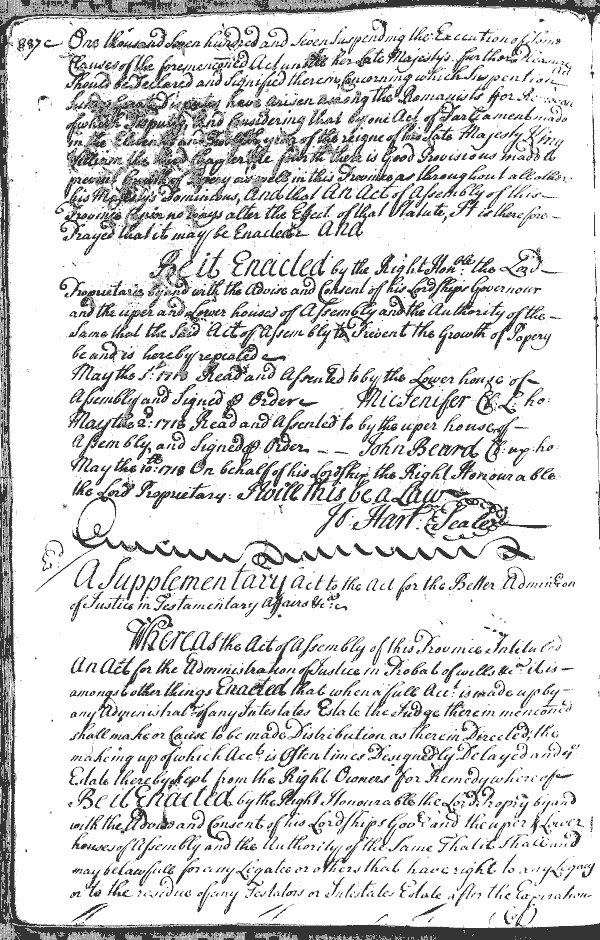 887
One thousand Seven hundred and Seven Suspending the Execution of some
Clauses of the forementioned Act untill her late Majestys further
Should be Declared and Signified therein Concerning which Suspention
have arisen among the Romanists for
of which and Considering that by one Act of Parliament made
in the Eleventh and year of the reigne of his late Majesty King
William the third Chapter the fourth there is Good Provisions made to
prevent the Growth of Popery as well in this Province as throughout all other
his Majestys Dominions, And that An Act of Assembly of this
Province can no ways alter the Effect of that Statute, It is therefore
Prayed that it may be Enacted And
Be it Enacted by the Right Honble. the Lord
Proprietary by and with the Advise and Consent of his Lordships Governour
and the uper and Lower houses of Assembly and the Authority of the
Same that the Said Act of Assembly to Prevent the Growth of Popery
be and is hereby repealed
May the 1718 Read and Assented to by the Lower house of
Assembly and Signed p Order Mic Jenifer Cl. L. ho:
May the 1718 Read and Assented to by the uper house of
Assembly and Signed p Order -- John Beard Cl. up. ho:
May the 10th: 1718 On behalf of his Lordship the Right Honourable
the Lord Proprietary: I will this be a Law
Jo. Hart. Sealed
A Supplementary act to the Act for the Better Admincon
of Justice in Testamentary Affairs &ca.
Whereas the Act of Assembly of this Province Intituled
An Act for the Administration of Justice in Probat of wills &ca. it is
amongst other things Enacted that when a full Acct. is made up by
any Administrat. of any Intestates Estate the Judge therein menconed
shall make or Cause to be made Distribution as therein Directed, the
making up of which Acct. is Often times Designedly Delayed and ye
Estate thereby kept from the Right Owners For Remedy where of
Be it Enacted by the Right Honourable the Lord Propry by and
with the Advice and Consent of his Lordships Govr. and the uper & Lower
houses of Assembly and the Authority of the Same That it Shall and
may be lawfull for any Legatee or others that have right to any Legacy
or to the residue of any Testators or Intestates Estate after the Expiration
(of)